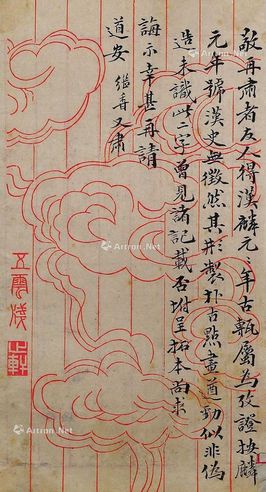 敬再肅者友人得漢麟元二年古甎屬為攷證按麟
元年號漢史無徵然其形製朴古點畫遒勁似非偽
造未識此二字曾見諸記載否坿呈拓本尚求
誨示幸甚再請
道安 繼香又肅
五雲牋
Artron.Net
Artron.Net
Artron.Net
Artron.Net